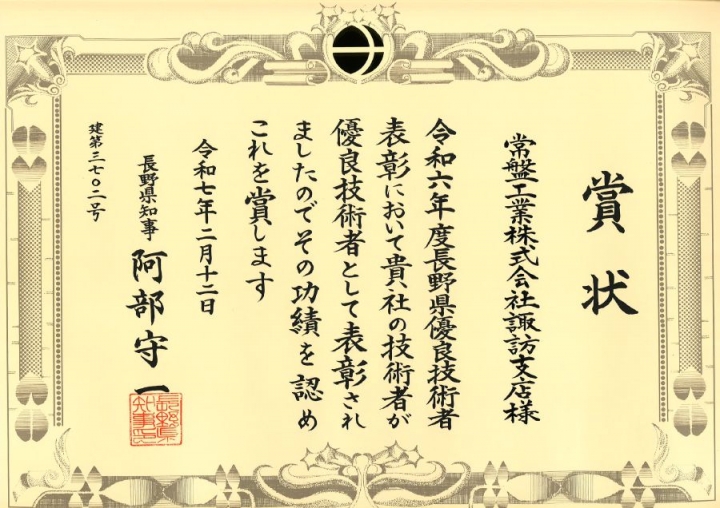 賞状
常盤工業株式会社諏訪支店様
令和六年度長野県優良技術者
表彰において貴社の技術者が
優良技術者として表彰され
ましたのでその功績を認め
これを賞します
令和七年二月十二日
長野県知事 阿部守一
長野県知事之印
建第三七〇二号